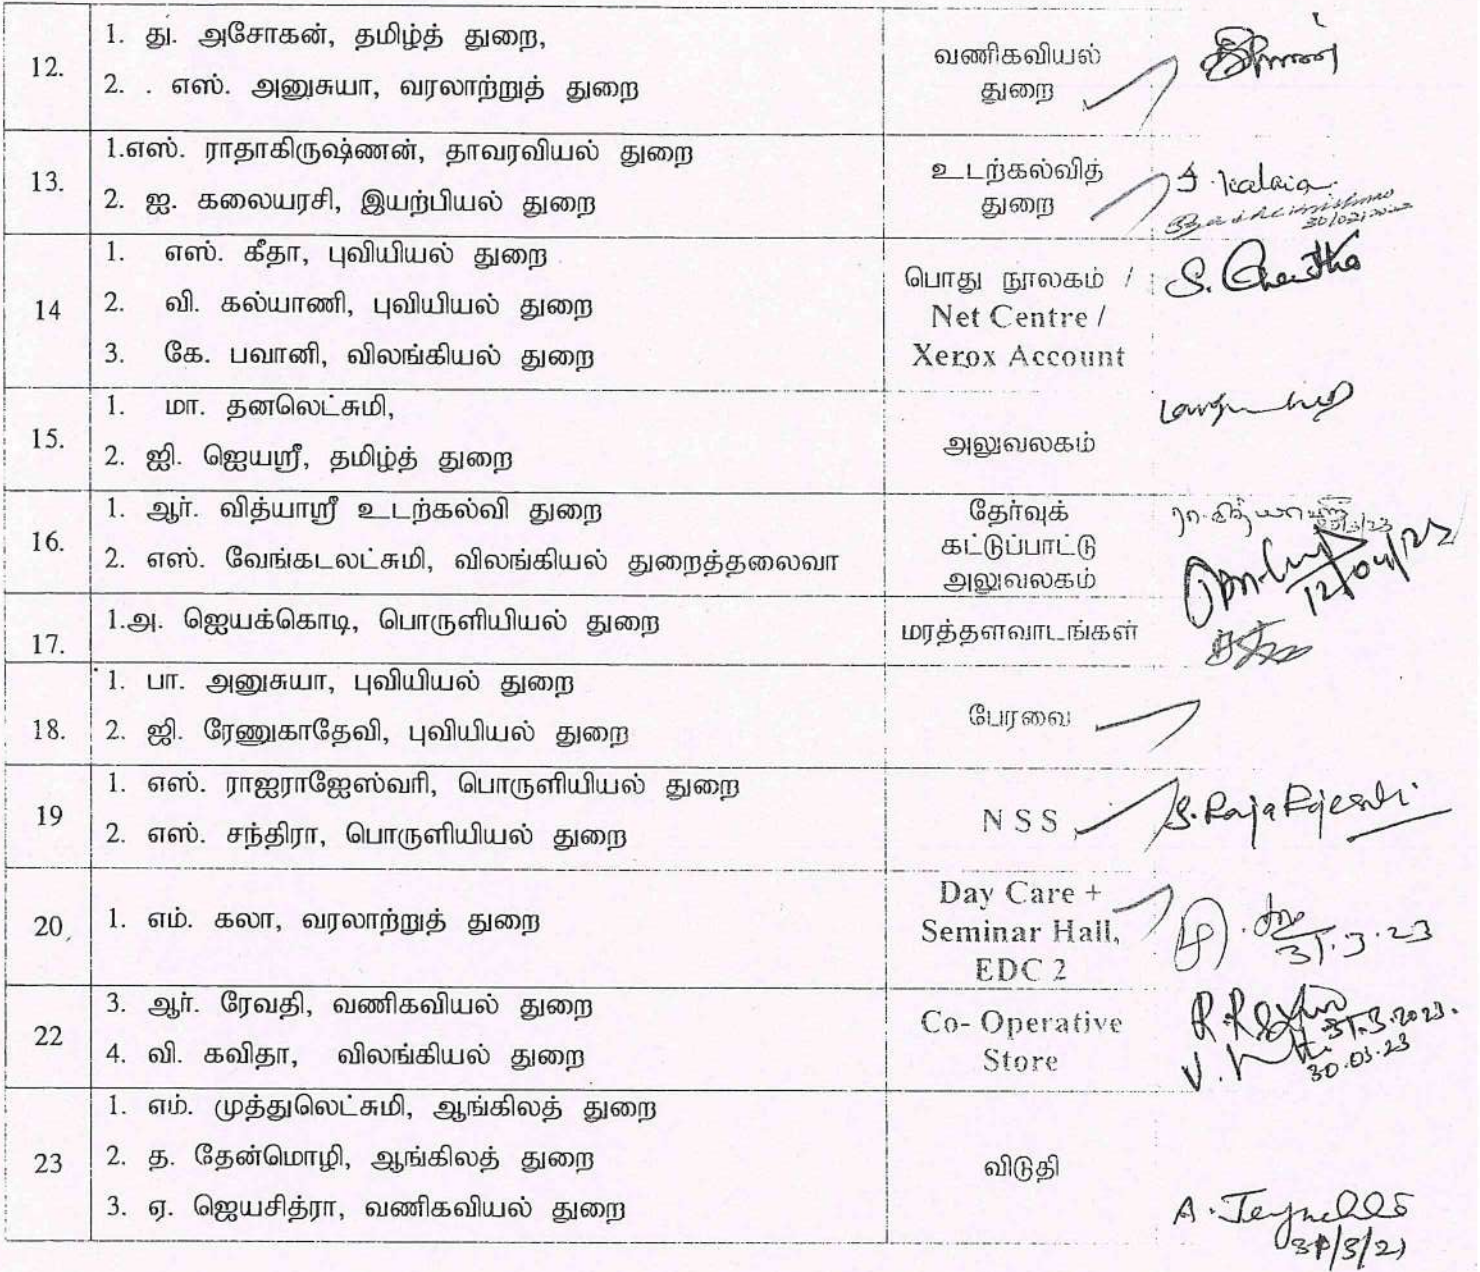 12.
1. து. அசோகன், தமிழ்த் துறை,
2. . எஸ். அனுசுயா, வரலாற்றுத் துறை
வணிகவியல்
துறை
13.
1.எஸ். ராதாகிருஷ்ணன், தாவரவியல் துறை
2. ஐ. கலையரசி, இயற்பியல் துறை
உடற்கல்வித்
துறை
30/03/2023
14
1. எஸ். கீதா, புவியியல் துறை
2. வி. கல்யாணி, புவியியல் துறை
3. கே. பவானி, விலங்கியல் துறை
பொது நூலகம் /
Net Centre /
Xerox Account
S. Geetha
15.
1. மா. தனலெட்சுமி,
2. ஜி. ஜெயஸ்ரீ, தமிழ்த் துறை
அலுவலகம்
16.
1. ஆர். வித்யாஸ்ரீ உடற்கல்வி துறை
2. எஸ். வேங்கடலட்சுமி, விலங்கியல் துறைத்தலைவா
தேர்வுக்
கட்டுப்பாட்டு
அலுவலகம்
12/04/23
17.
1.அ. ஜெயக்கொடி, பொருளியியல் துறை
மரத்தளவாடங்கள்
18.
1. பா. அனுசுயா, புவியியல் துறை
2. ஜி. ரேணுகாதேவி, புவியியல் துறை
பேரவை
19
1. எஸ். ராஜராஜேஸ்வரி, பொருளியியல் துறை
2. எஸ். சந்திரா, பொருளியியல் துறை
N S S
20
1. எம். கலா, வரலாற்றுத் துறை
Day Care +
Seminar Hall,
EDC 2
31.3.23
22
3. ஆர். ரேவதி, வணிகவியல் துறை
4. வி. கவிதா, விலங்கியல் துறை
Co- Operative
Store
31.3.2023.
30.03.23
23
1. எம். முத்துலெட்சுமி, ஆங்கிலத் துறை
2. த. தேன்மொழி, ஆங்கிலத் துறை
3. ஏ. ஜெயசித்ரா, வணிகவியல் துறை
விடுதி